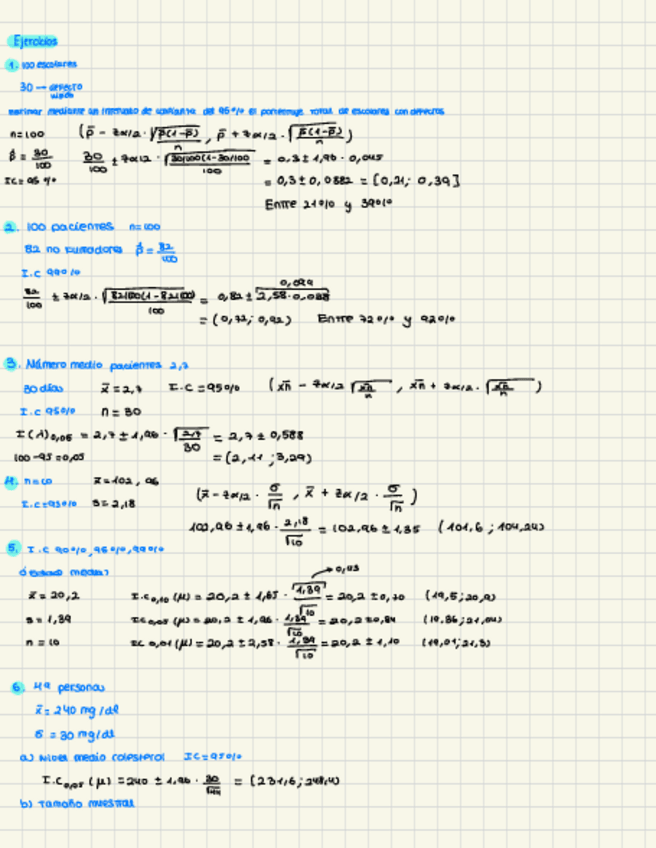 Ejercicios
1. 100 escolares
30 → defecto
visado
estimar mediante un intervalo de confianza del 95% el porcentaje total de escolares con defectos
n=100 (p̄ − zα/2 · √(p̄(1−p̄)/n) , p̄ + zα/2 · √(p̄(1−p̄)/n))
p̂ = 30/100 30/100 ± zα/2 · √(30/100(1−30/100)/100) = 0,3 ± 1,96 · 0,045
IC=95% = 0,3 ± 0,0882 = [0,21; 0,39]
Entre 21% y 39%
2. 100 pacientes n=100
82 no fumadores p̂ = 82/100
I.C 99%
0,099
82/100 ± zα/2 · √(82/100(1−82/100)/100) = 0,82 ± 2,58·0,038
= (0,72; 0,92) Entre 72% y 92%
3. Número medio pacientes 2,7
30 días x̄=2,7 I.C=95% (x̄n − zα/2 √(x̄n/n) , x̄n + zα/2 · √(x̄n/n))
I.C 95% n=30
I(λ)0,05 = 2,7 ± 1,96 · √(2,7/30) = 2,7 ± 0,588
100−95=0,05 = (2,11 ; 3,29)
4. n=10 x̄=102,96 (x̄ − zα/2 · σ/√n , x̄ + zα/2 · σ/√n)
I.C=95% s=2,18
102,96 ± 1,96 · 2,18/√10 = 102,96 ± 1,35 (101,6 ; 104,24)
5. I.C 90%, 95%, 99%
→ 0,43
x̄ = 20,2 I.C0,10 (μ) = 20,2 ± 1,65 · 1,39/√10 = 20,2 ± 0,70 (19,5; 20,9)
s = 1,39 I.C 0,05 (μ) = 20,2 ± 1,96 · 1,39/√10 = 20,2 ± 0,84 (19,36; 21,04)
n = 10 I.C 0,01 (μ) = 20,2 ± 2,58 · 1,39/√10 = 20,2 ± 1,10 (19,01; 21,3)
6. 49 personas
x̄ = 240 mg/dl
σ = 30 mg/dl
a) Nivel medio colesterol IC=95%
I.C0,05 (μ) = 240 ± 1,96 · 30/√49 = (231,6; 248,4)
b) Tamaño muestral